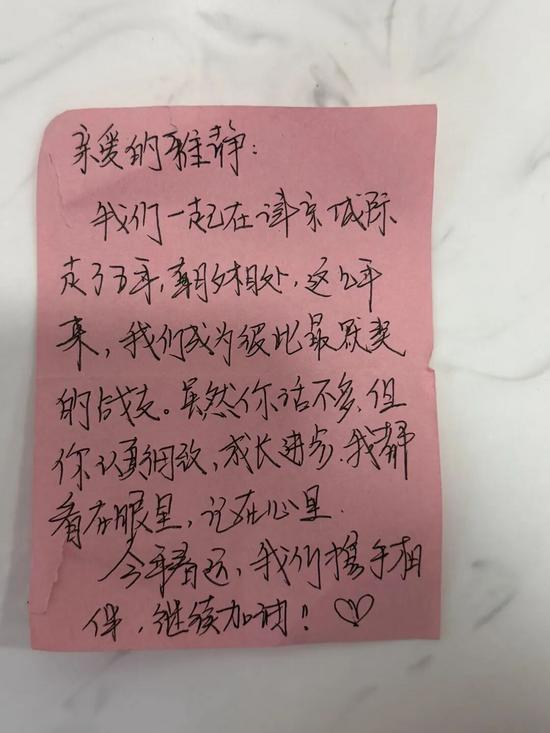 亲爱的雅静:
我们一起在津京城际
走了五年,朝夕相处,这几年
来,我们成为彼此最默契
的战友。虽然你话不多,但
你认真细致,成长进步,我都
看在眼里,记在心里.
今年春运,我们携手相
伴,继续加油!♡